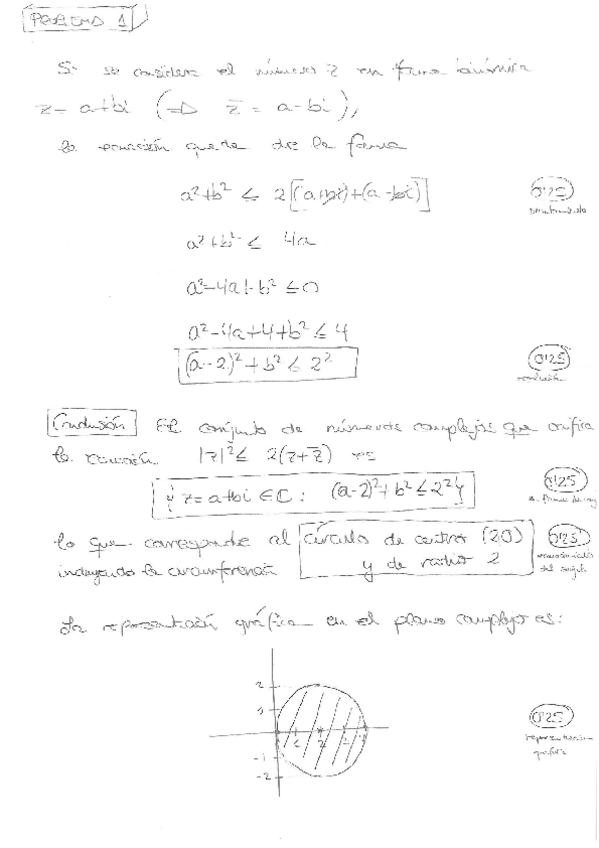 PROBLEMA 1
Si se considera el número z en forma binómica
z = a+bi (⇒ z̄ = a-bi),
la ecuación queda de la forma
a²+b² ≤ 2[(a+bi)+(a-bi)] 0'25
a²+b² ≤ 4a
a²-4a+b² ≤ 0
a²-4a+4+b² ≤ 4
(a-2)²+b² ≤ 2² 0'25
Conclusión El conjunto de números complejos que verifica
la ecuación |z|² ≤ 2(z+z̄) es
{z=a+bi ∈ ℂ : (a-2)²+b² ≤ 2²} 0'25
lo que corresponde al círculo de centro (2,0) 0'25
incluyendo la circunferencia y de radio 2
La representación gráfica en el plano complejo es:
2
1
1 2 3
-1
-2
0'25
representación
gráfica